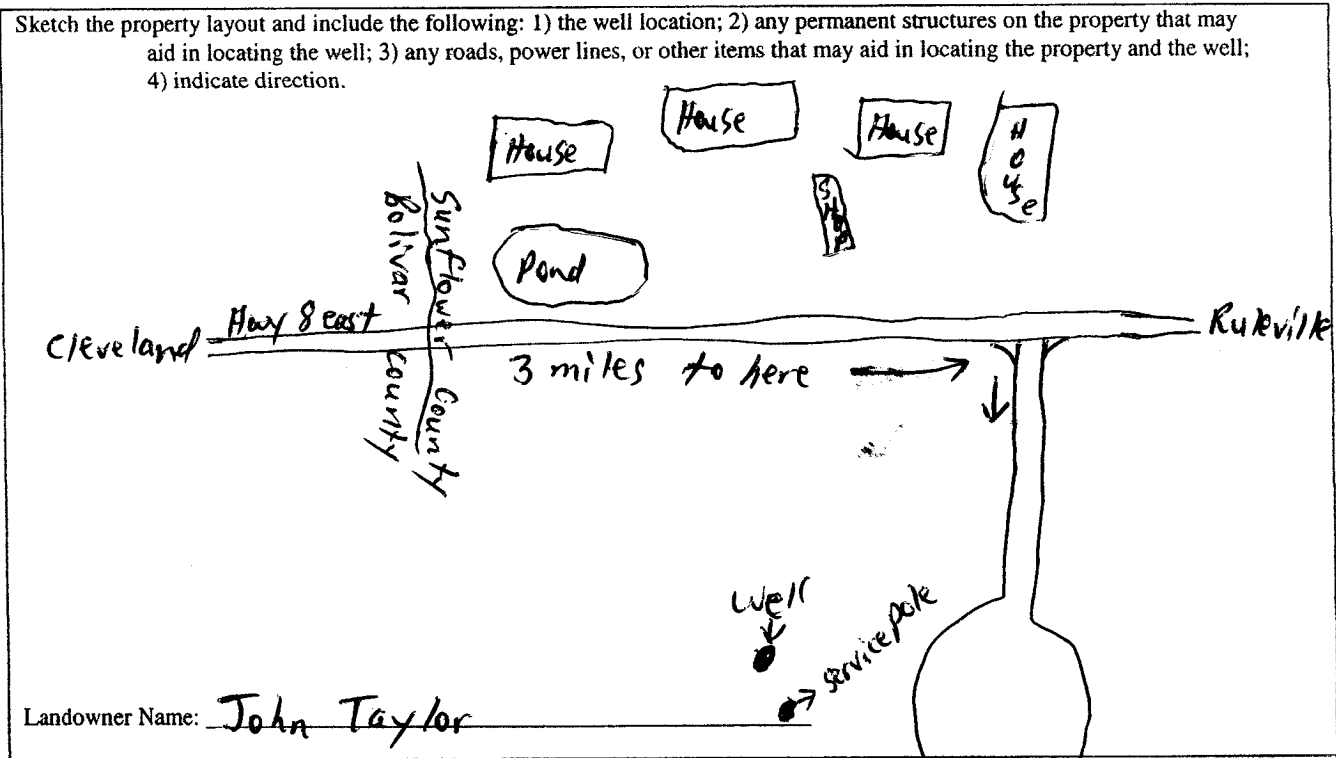 Sketch the property layout and include the following: 1) the well location; 2) any permanent structures on the property that may
aid in locating the well; 3) any roads, power lines, or other items that may aid in locating the property and the well;
4) indicate direction.
House
House
House
House
Shop
Pond
Sunflower County
Bolivar County
Cleveland
Hwy 8 east
Ruleville
3 miles to here
Well
service pole
Landowner Name: John Taylor